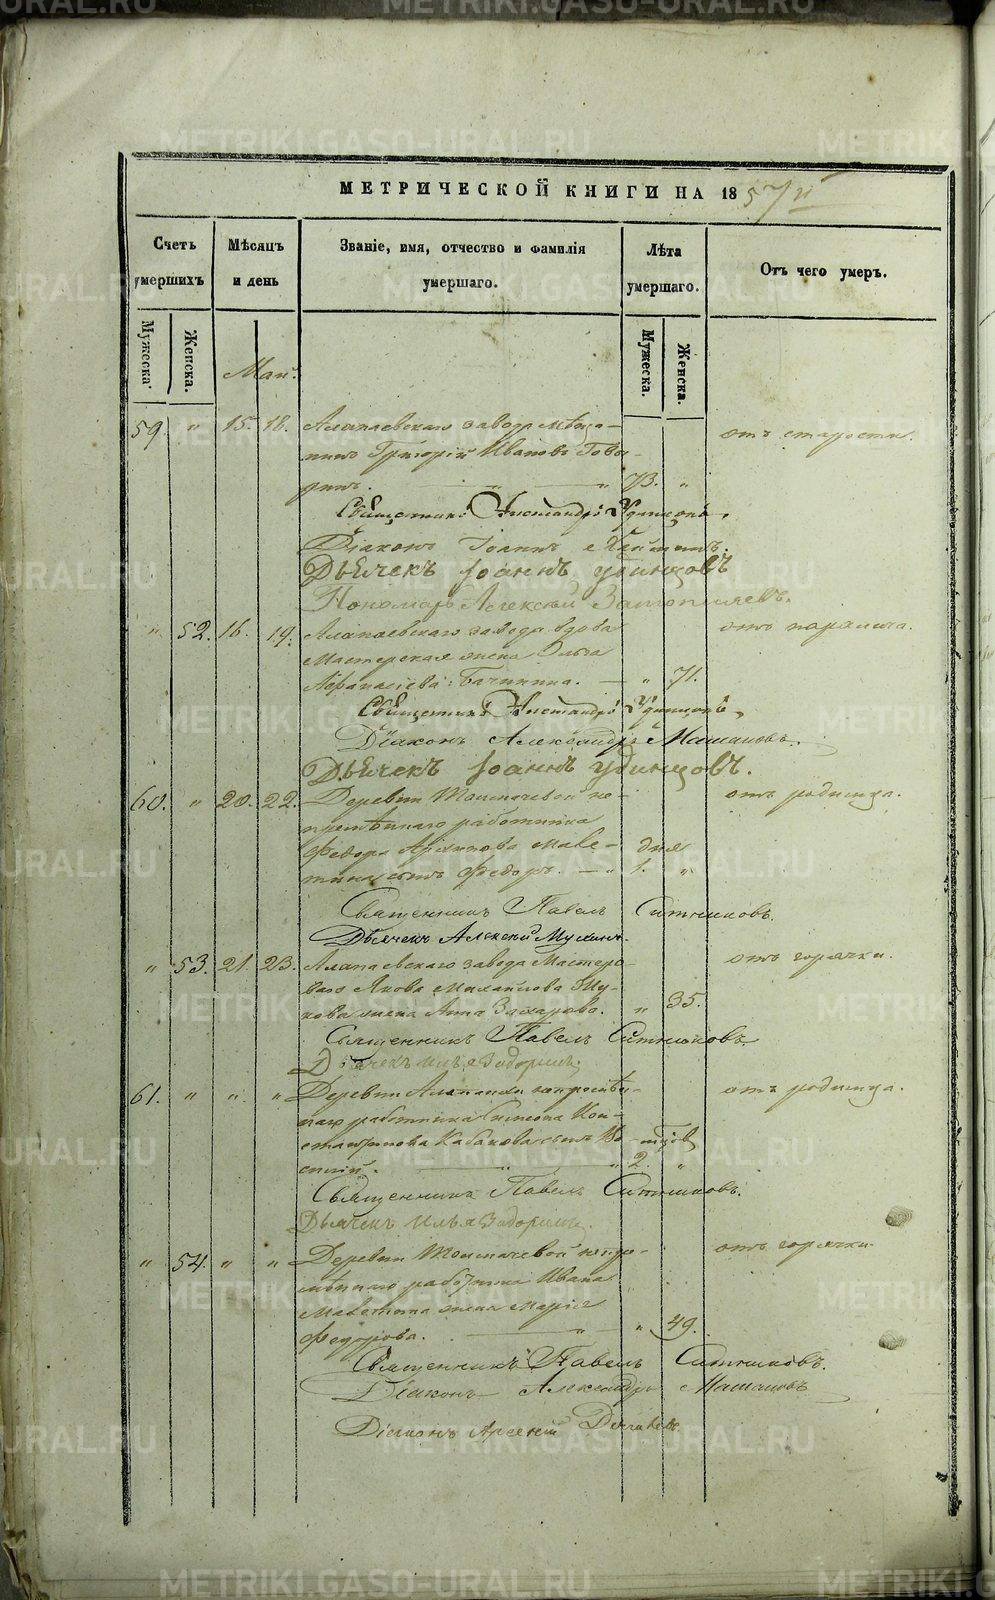 METRIKI.GASO-URAL.RU
МЕТРИЧЕСКОЙ КНИГИ НА 1857й
Счетъ умершихъ
Мѣсяцъ и день
Званіе, имя, отчество и фамилія умершаго.
Лѣта умершаго.
Отъ чего умеръ.
Мужеска.
Женска.
Мужеска.
Женска.
Маій.
59. " 15. 18. Алапаевскаго завода мѣща-
нинъ Григорій Ивановъ Говы-
ринъ. 73. "
отъ старости.
Священникъ Александръ Удинцовъ.
Діаконъ Іоаннъ
Дьячекъ Іоаннъ Удинцовъ
Пономарь Алексѣй Затопляевъ.
" 52. 16. 19. Алапаевскаго завода вдова
отъ паралича.
Мастерская жена Ольга
Афанасіева Бачинина. " 71.
Священникъ Александръ Удинцовъ,
Діаконъ Александръ Машановъ.
Дьячекъ Іоаннъ Удинцовъ.
60. " 20. 22. Деревни Толмачевой не-
отъ родимца.
премѣннаго работника
Федора Архипова Маве-
тина сынъ Федоръ. дня 1. "
Священникъ Павелъ Ситниковъ.
Дьячекъ Алексей Мухинъ.
" 53. 21. 23. Алапаевскаго завода Мастеро-
отъ горячки.
ваго Якова Михайлова
жена Анна Захарова. " 35.
Священникъ Павелъ Ситниковъ.
Дьячекъ Илья Задоринъ.
61. " " " Деревни Алапаихи непремѣн-
отъ родимца.
наго работника Кон-
стантинова Кабакова сынъ Ва-
силій. 2. "
Священникъ Павелъ Ситниковъ.
Дьячекъ Илья Задоринъ.
" 54. " " Деревни Толмачевой непре-
отъ горячки
мѣннаго работника Ивана
Маветина жена Марія
Федорова. " 49.
Священникъ Павелъ Ситниковъ.
Діаконъ Александръ Машановъ
Діаконъ Арсеній